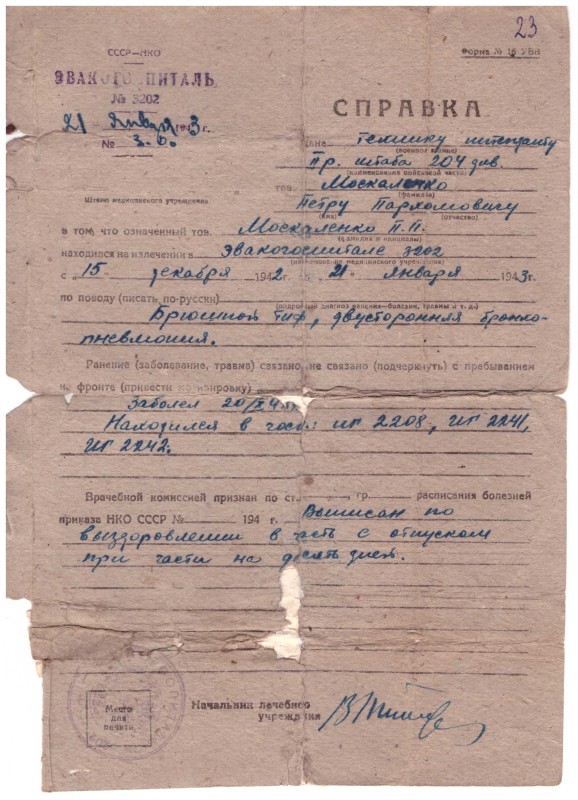 23
СССР—НКО
ЭВАКОГО ПИТАЛЬ
№ 3202
21 января 1943 г.
№ 3.6.
Форма № 16 УВН
СПРАВКА
Дана технику интенданту
(военное звание)
Пр. штаба 204 див.
(наименование войсковой части)
тов. Москаленко
(фамилия)
Петру Пархомовичу
(имя) (отчество)
Штамп медицинского учреждения
в том, что означенный тов. Москаленко П.П.
(фамилия и инициалы)
находился на излечении в Эвакогоспитале 3202
(наименование медицинского учреждения)
с „15 декабря 1942 г. 21 января 1943 г.
по поводу (писать по-русски)
(подробный диагноз ранения—болезни, травмы и т. д.)
Брюшной тиф, двусторонняя бронхо-
пневмония.
Ранение (заболевание, травма) связано, не связано (подчеркнуть) с пребыванием
на фронте (привести командировку)
Заболел 20/X 4
Находился в госп: ИГ 2208, ИГ 2241,
ИГ 2242.
Врачебной комиссией признан по ст. гр. расписания болезней
приказа НКО СССР № 194 г. Выписан по
выздоровлении в часть с отпуском
при части на десять дней.
Место
для
печати
Начальник лечебного
учреждения